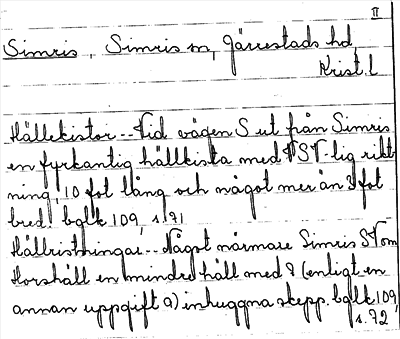 II
Simris, Simris sn, Järrestads hd,
Krist. l
Hällekistor.- Vid vägen S ut från Simris
en fyrkantig hällkista med VSV-lig rikt-
ning, 10 fot lång och något mer än 3 fot
bred. bglk 109, s. 71
Hällristningar.- Något närmare Simris S Vom
Horshäll en mindre häll med 8 (enligt en
annan uppgift 9) inhuggna skepp. bglk 109,
s. 72